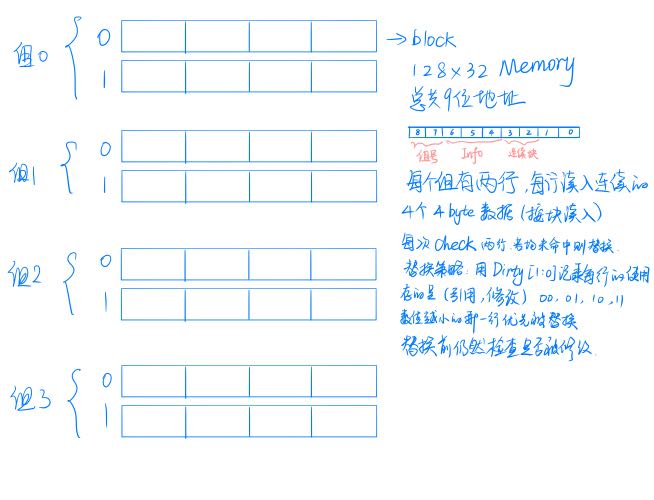 组0
0
1
→ block
128×32 Memory
总共9位地址
8 7 6 5 4 3 2 1 0
组号 Info 连续块
组1
0
1
每个组有两行,每行读入连续的
4个4byte数据(按块读入)
组2
0
1
每次check两行 若均未命中则替换.
替换策略: 用Dirty[1:0]记录每行的使用
存的是(引用,修改) 00,01,10,11
数值越小的那一行优先被替换
替换前仍然检查是否被修改.
组3
0
1